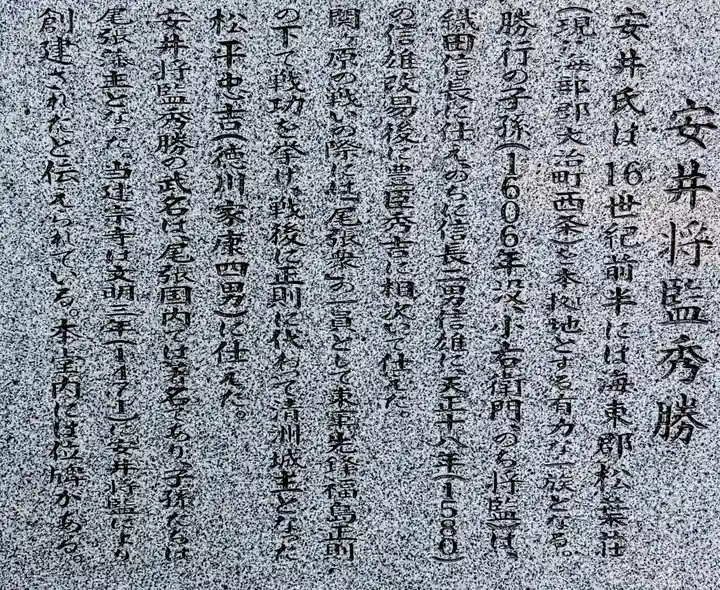 安井将監秀勝
安井氏は16世紀前半には海東郡松葉荘
(現・海部郡大治町西条)を本拠地とする有力な一族となる。
勝行の子孫(1606年没、小右衛門、のち将監)は、
織田信長に仕えのちに信長二男信雄に天正十八年(1580)
の信雄改易後に豊臣秀吉に相次いで仕えた。
関ヶ原の戦いの際には「尾張衆」の一員として東軍先鋒福島正則
の下で戦功を挙げ、戦後に正則に代わって清洲城主となった
松平忠吉(徳川家康四男)に仕えた。
安井将監秀勝の武名は、尾張国内では著名であり、子孫たちは
尾張藩士となった。当建宗寺は文明三年(1471)に安井将監により
創建されたと伝えられている。本堂内には位牌がある。